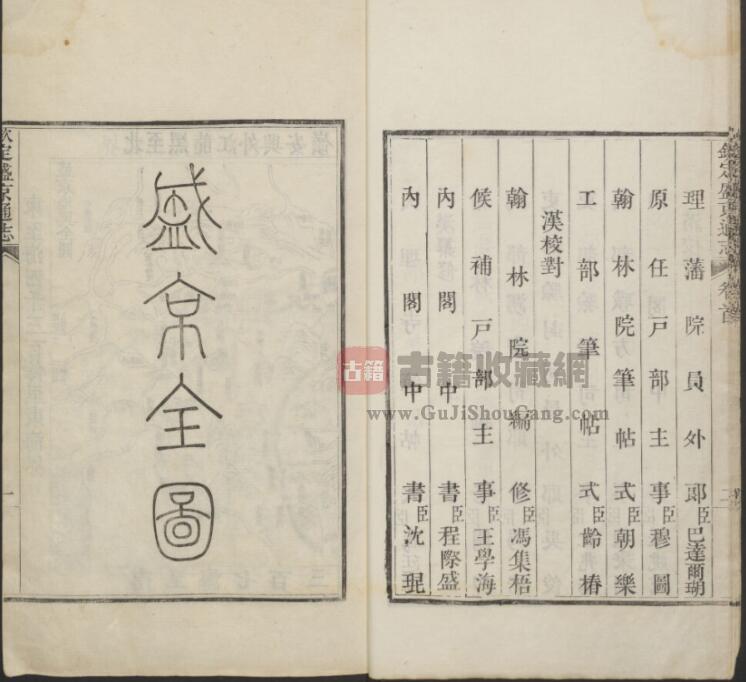 欽定盛京通志 卷首
理藩院員外郎臣巴達爾瑚
原任戶部主事臣穆圖
翰林院筆帖式臣朝樂
工部筆帖式臣齡椿
漢校對
翰林院編修臣馮集梧
候補戶部主事臣王學海
內閣中書臣程際盛
內閣中書臣沈琨
盛京全圖
欽定盛京通志
一
古籍
古籍收藏網
www.GuJiShouCang.com